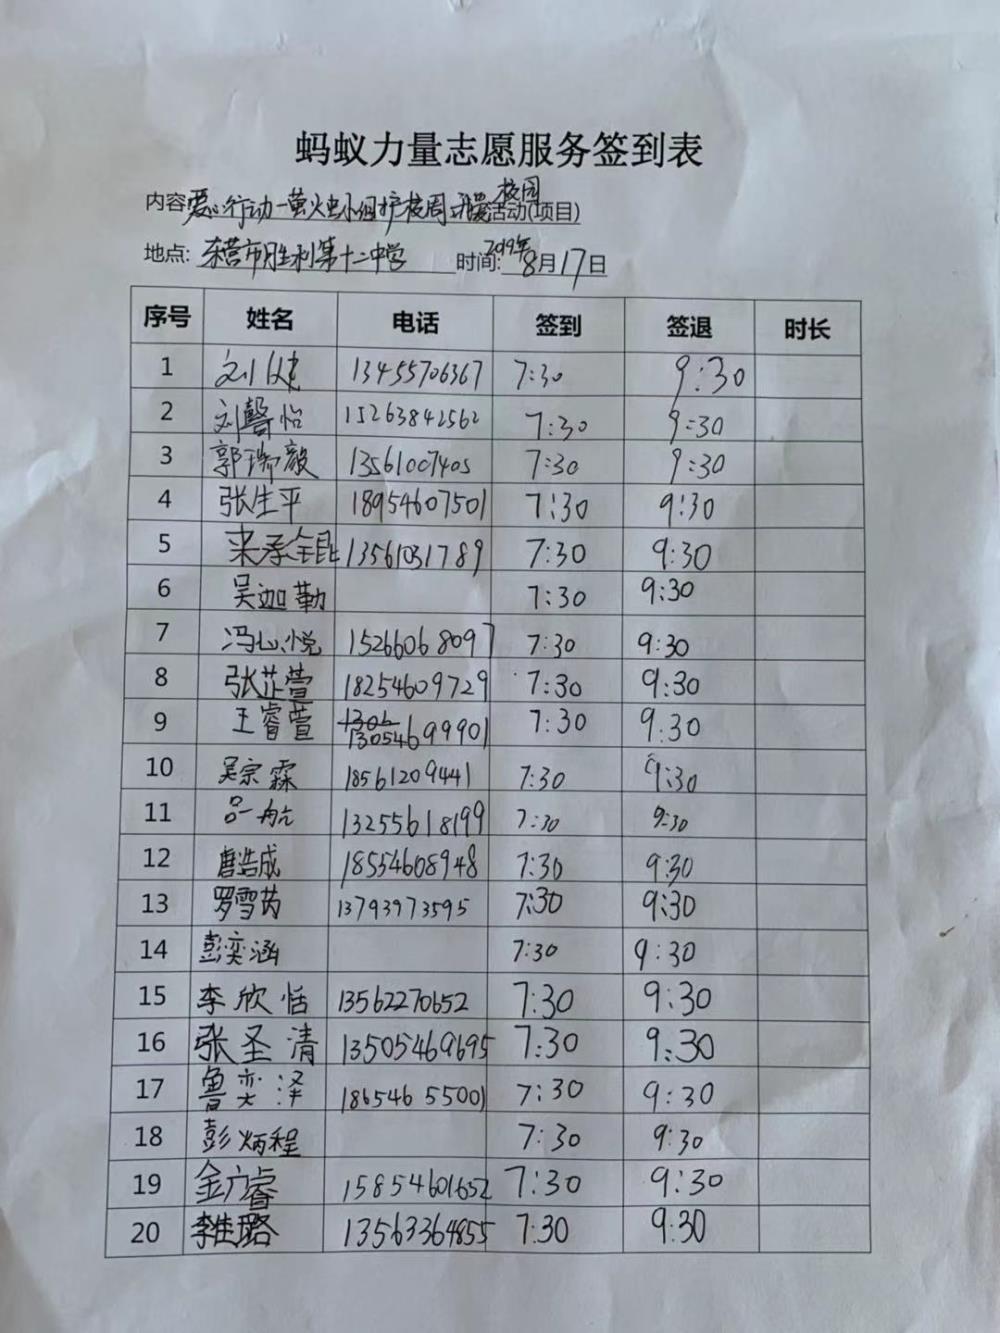 蚂蚁力量志愿服务签到表
校园
内容爱心行动-萤火虫小组护校周活动(项目)
2019年
地点:东营市胜利第十二中学 时间:8月17日
序号 姓名 电话 签到 签退 时长
1 刘健 13455706367 7:30 9:30
2 刘馨怡 15263842562 7:30 9:30
3 郭瑞毅 13561007405 7:30 9:30
4 张生平 18954607501 7:30 9:30
5 来承 13561031789 7:30 9:30
6 吴迦勒 7:30 9:30
7 冯心悦 15266068097 7:30 9:30
8 张芷萱 18254609729 7:30 9:30
9 王睿萱 13054699901 7:30 9:30
10 吴宗霖 18561209441 7:30 9:30
11 吕一航 13255618199 7:30 9:30
12 唐浩成 18554608948 7:30 9:30
13 罗雪芮 13793973595 7:30 9:30
14 彭奕涵 7:30 9:30
15 李欣恬 13562270652 7:30 9:30
16 张圣清 13505469695 7:30 9:30
17 鲁奕泽 18654655001 7:30 9:30
18 彭炳程 7:30 9:30
19 金广睿 15854601652 7:30 9:30
20 李佳璐 13563364855 7:30 9:30